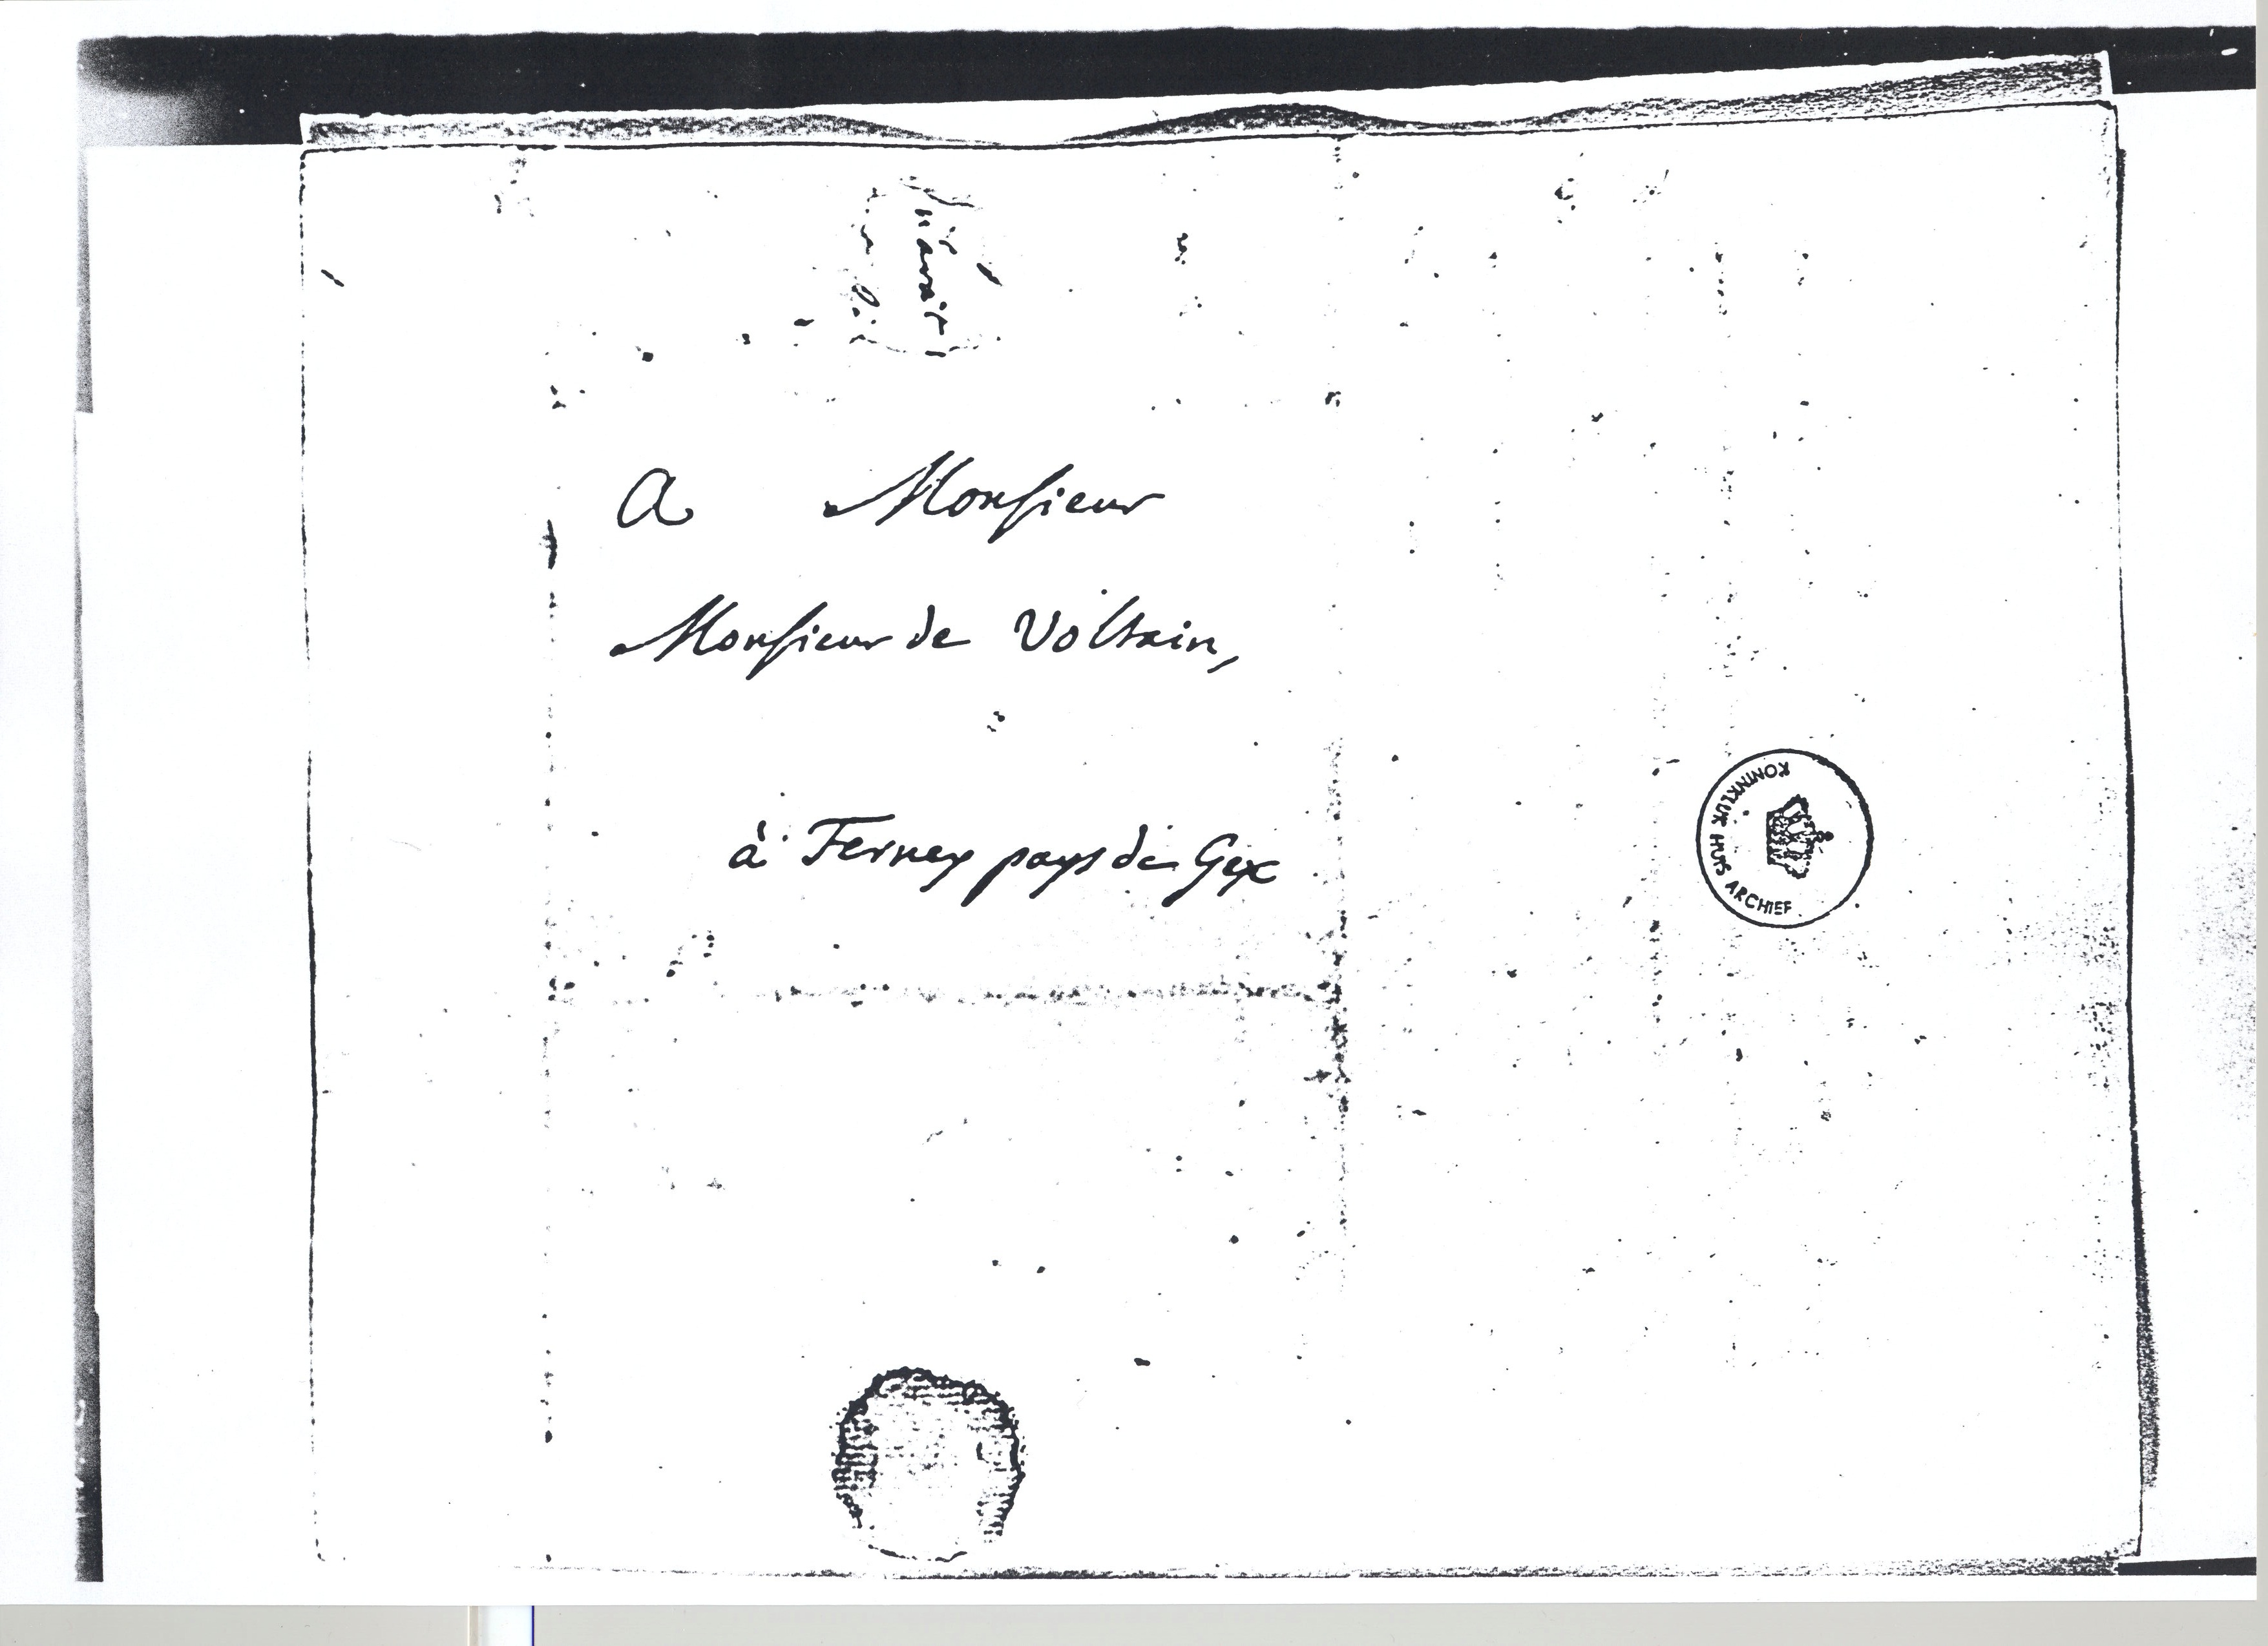 n'avait
A Monsieur
Monsieur de Voltain,
à Ferney pays de Gex
KONINKLIJK HUIS ARCHIEF